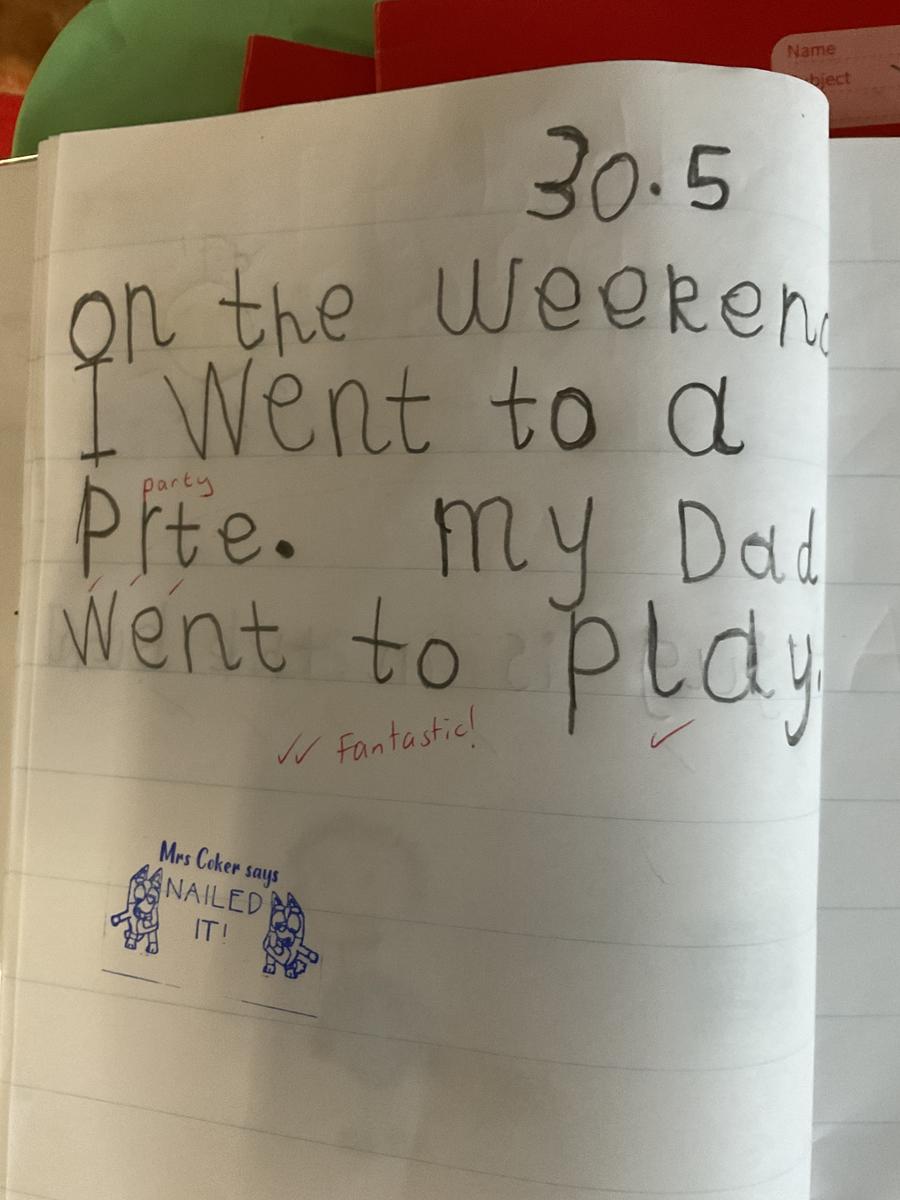 Name
Subject
30.5
on the weekend
I went to a
party
Prte. my Dad
went to play.
✓✓ Fantastic! ✓
Mrs Coker says
NAILED
IT!